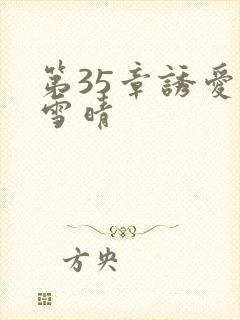 第35章誘愛
雪晴
方央